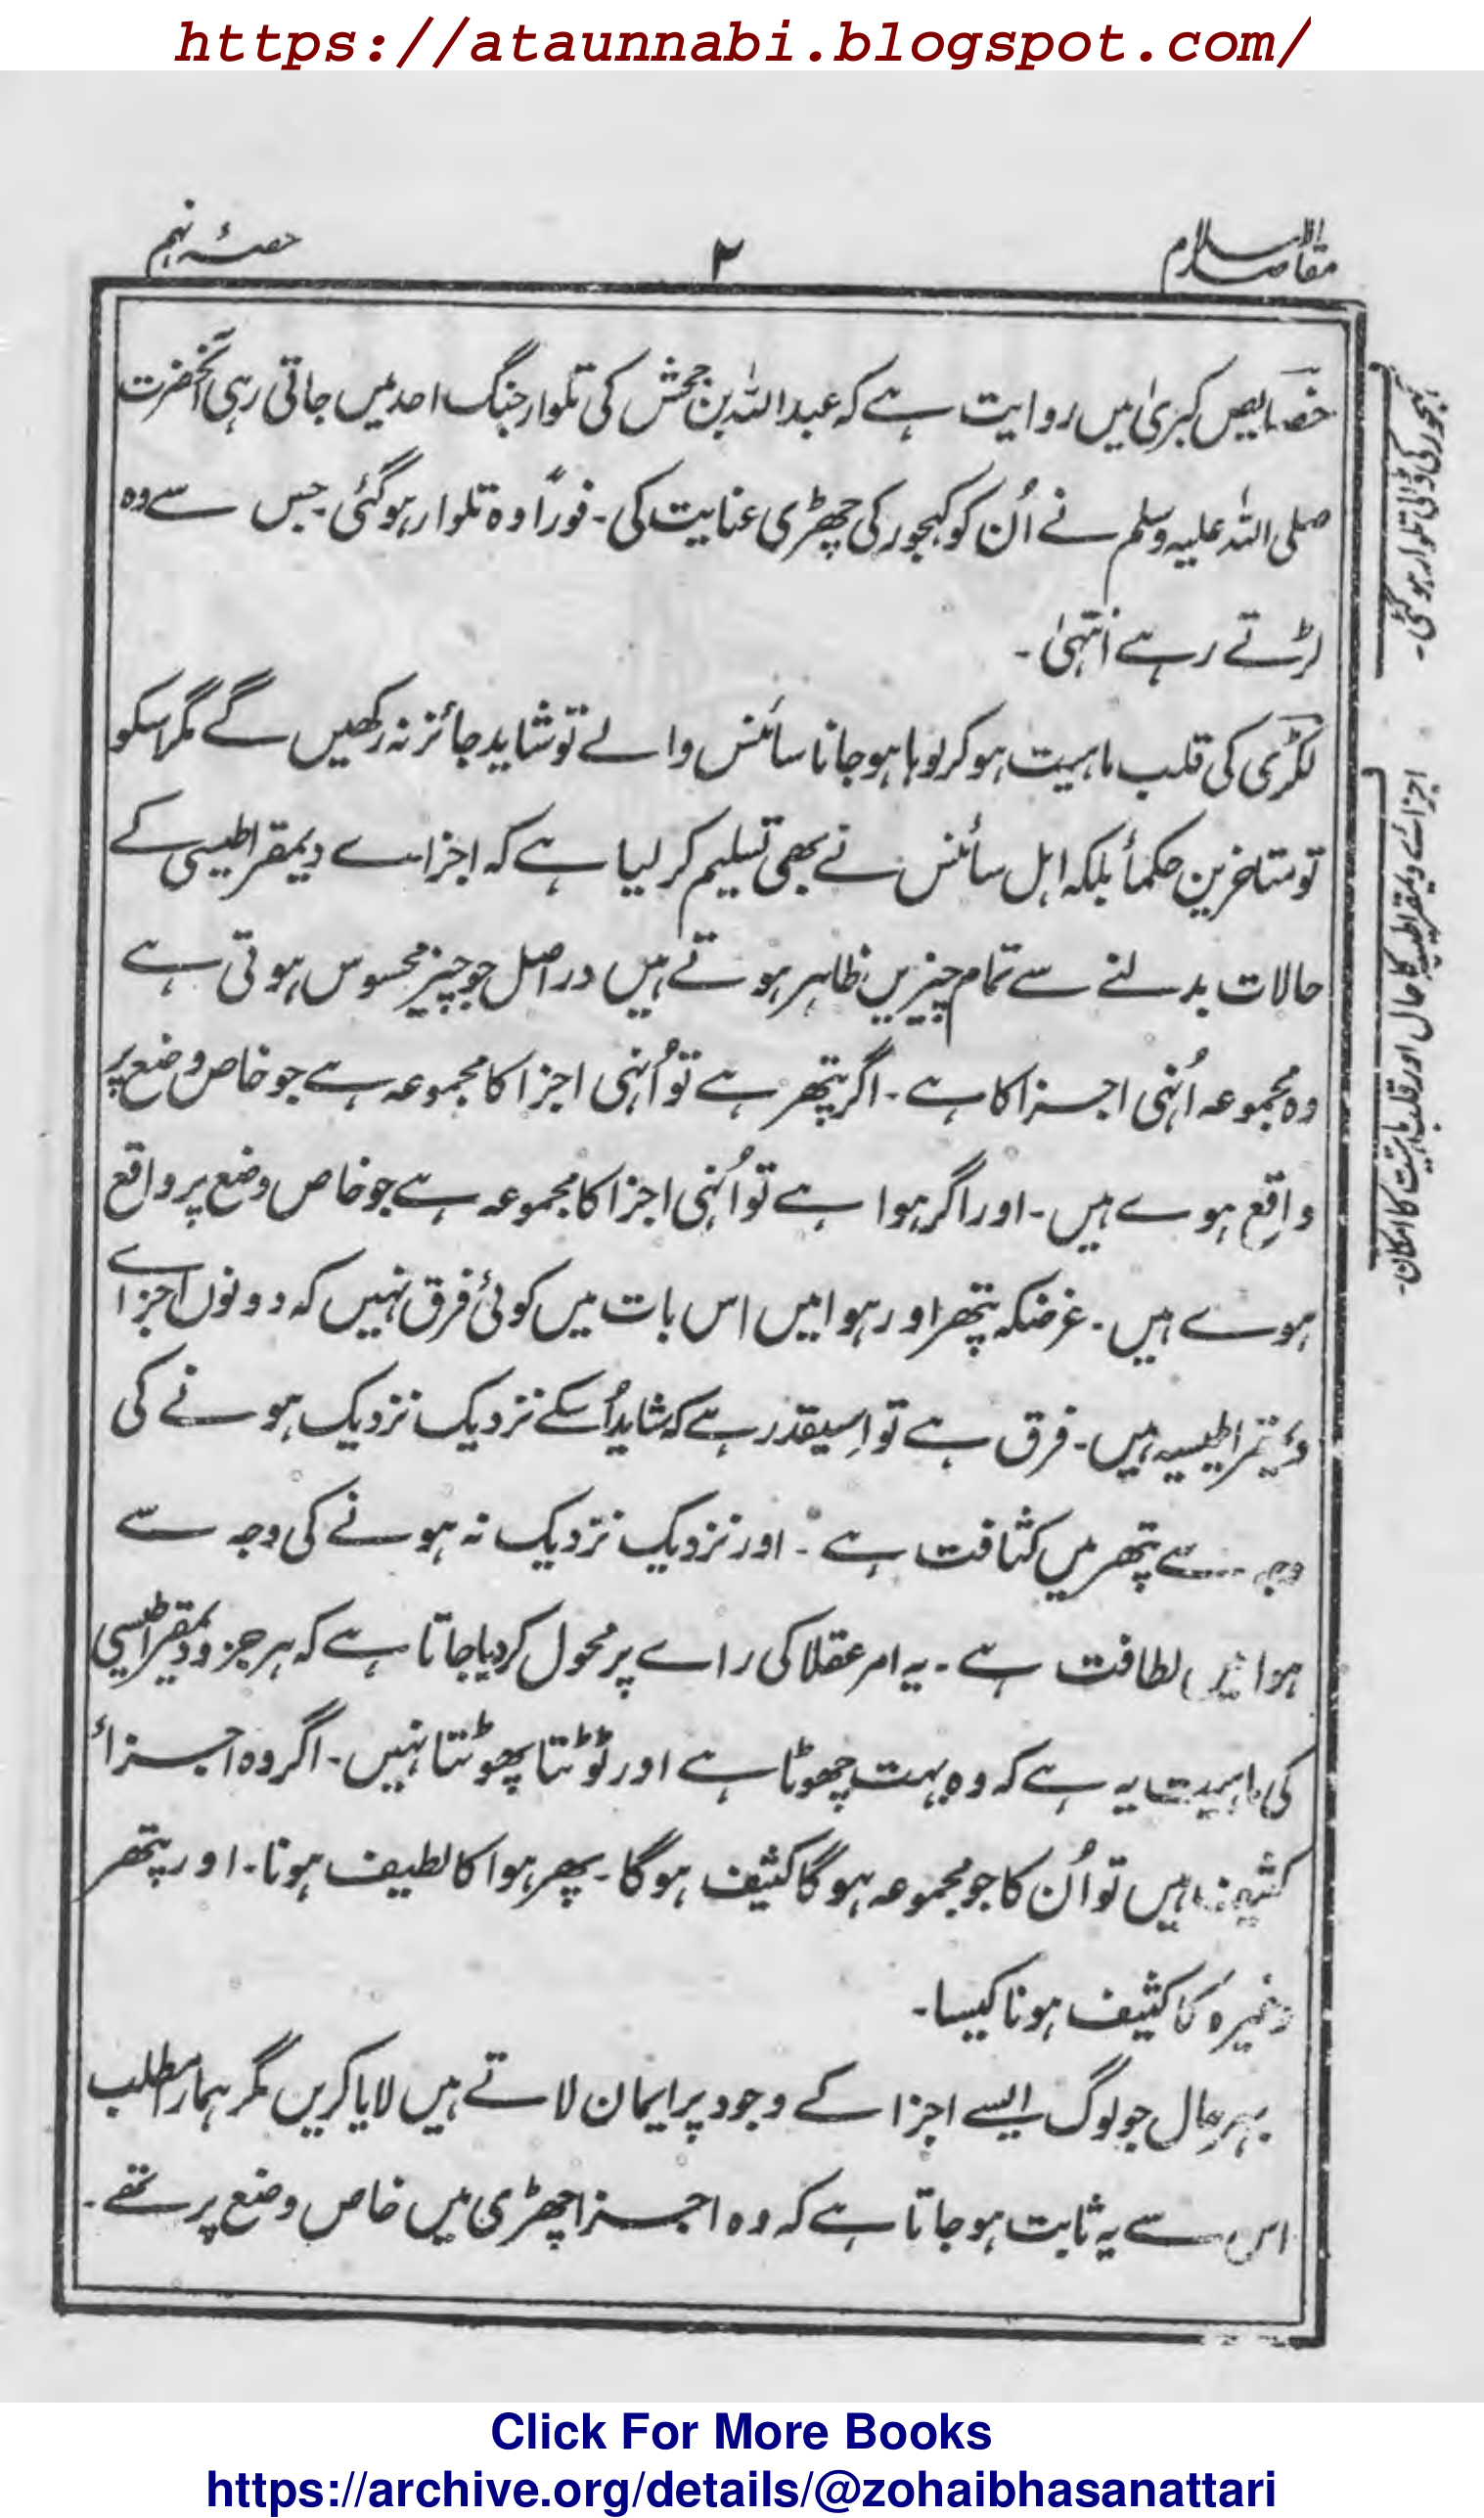 https://ataunnabi.blogspot.com/
مقاصد الاسلام
۲
حصۂ نہم
خصایص کبریٰ میں روایت ہے کہ عبداللہ بن جحش کی تلوار جنگ احد میں جاتی رہی آنحضرت
صلی اللہ علیہ وسلم نے اُن کو کہجور کی چھڑی عنایت کی۔ فوراً وہ تلوار ہوگئی جس سے وہ
لڑتے رہے انتہیٰ۔
لکڑی کی قلب ماہیت ہوکر لوہا ہوجانا سائنس والے تو شاید جائز نہ رکھیں گے مگر اسکو
تو متاخرین حکمأ بلکہ اہل سائنس نے بھی تسلیم کر لیا ہے کہ اجزاے دیمقراطیسی کے
حالات بدلنے سے تمام چیزیں ظاہر ہوتے ہیں دراصل جو چیز محسوس ہوتی ہے
وہ مجموعہ اُنہی اجزا کا ہے۔ اگر پتھر ہے تو اُنہی اجزا کا مجموعہ ہے جو خاص وضع پر
واقع ہوے ہیں۔ اور اگر ہوا ہے تو اُنہی اجزا کا مجموعہ ہے جو خاص وضع پر واقع
ہوے ہیں۔ غرضکہ پتھر اور ہوا میں اس بات میں کوئی فرق نہیں کہ دونوں اجزاے
دیمقراطیسیہ ہیں۔ فرق ہے تو اسیقدر ہے کہ شاید اُسکے نزدیک نزدیک ہونے کی
وجہ سے پتھر میں کثافت ہے۔ اور نزدیک نزدیک نہ ہونے کی وجہ سے
ہوا میں لطافت ہے۔ یہ امر عقلا کی راے پر محول کردیا جاتا ہے کہ ہر جزو دیمقراطیسی
کی ماہیت یہ ہے کہ وہ بہت چھوٹا ہے اور ٹوٹتا پھوٹتا نہیں۔ اگر وہ اجزأ
کثیف ہیں تو اُن کا جو مجموعہ ہوگا کثیف ہوگا۔ پھر ہوا کا لطیف ہونا۔ اور پتھر
وغیرہ کا کثیف ہونا کیسا۔
بہرحال جو لوگ ایسے اجزا کے وجود پر ایمان لاتے ہیں لایا کریں مگر ہمارا مطلب
اس سے یہ ثابت ہوجاتا ہے کہ وہ اجزا چھڑی میں خاص وضع پر تھے۔
کہجور کی تلوار ہوگئی۔
اجزاے دیمقراطیسیہ کا حال اور قلب ماہیت کا امکان۔
Click For More Books
https://archive.org/details/@zohaibhasanattari